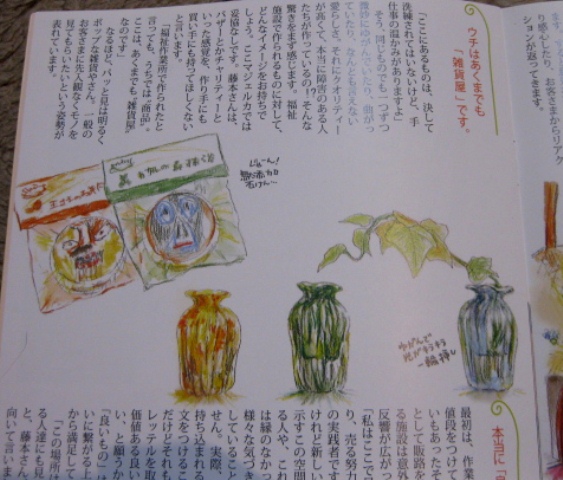 ます
り感心したり、お客さまからリアク
ションが返ってきます。
ウチはあくまでも
「雑貨屋」です。
「ここにあるものは、決して
洗練されてはいないけど、手
仕事の温かみがありますよ」
そう、同じものでも一つずつ
微妙にゆがんでいたり、曲がっ
ていたり、なんとも言えない
愛らしさ、それにクオリティー
が高くて、本当に障害のある人
たちが作っているの!?そんな
驚きをまず感じます。福祉
施設で作られるものに対して、
どんなイメージをお持ちで
しょう。ここマジェルカでは
妥協なしです。藤本さんは、
バザーとかチャリティーと
いった感覚を、作り手にも
買い手にも持ってほしくない
と言います。
「福祉作業所で作られたと
言っても、うちでは"商品"。
ここは、あくまでも"雑貨屋"
なのです」
なるほど、パッと見は明るく
ポップな雑貨やさん。一般の
お客さまに先入観なくモノを
見てもらいたいという姿勢が
表れています。
じゃーん!
石けん…
ゆがんで
一輪挿し
本当に「
最初は、作業
値段をつけて
いもあったそ
として販路を
る施設は意外
反響が広がっ
「私はここで
り、売る努力
の実践者です
けれど新しい
示すこの空間
る人や、これ
は縁のなかっ
様々な気づき
していること
せん。実際、
持ち込まれる
文をつけるこ
だけどそれも
レッテルを取
価値ある良い
い、と願うか
「良いもの」は
いに繋がる上
から満足して
「この場所は
る人達にも見
と、藤本さん
向いて言いま